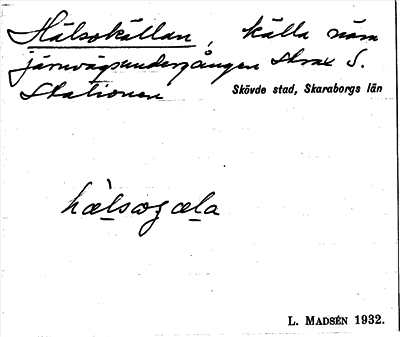 Hälsokällan, källa näm
järnvägsundergången strax S.
Stationen
Skövde stad, Skaraborgs län
hælsoɡæla
L. MADSÉN 1932.